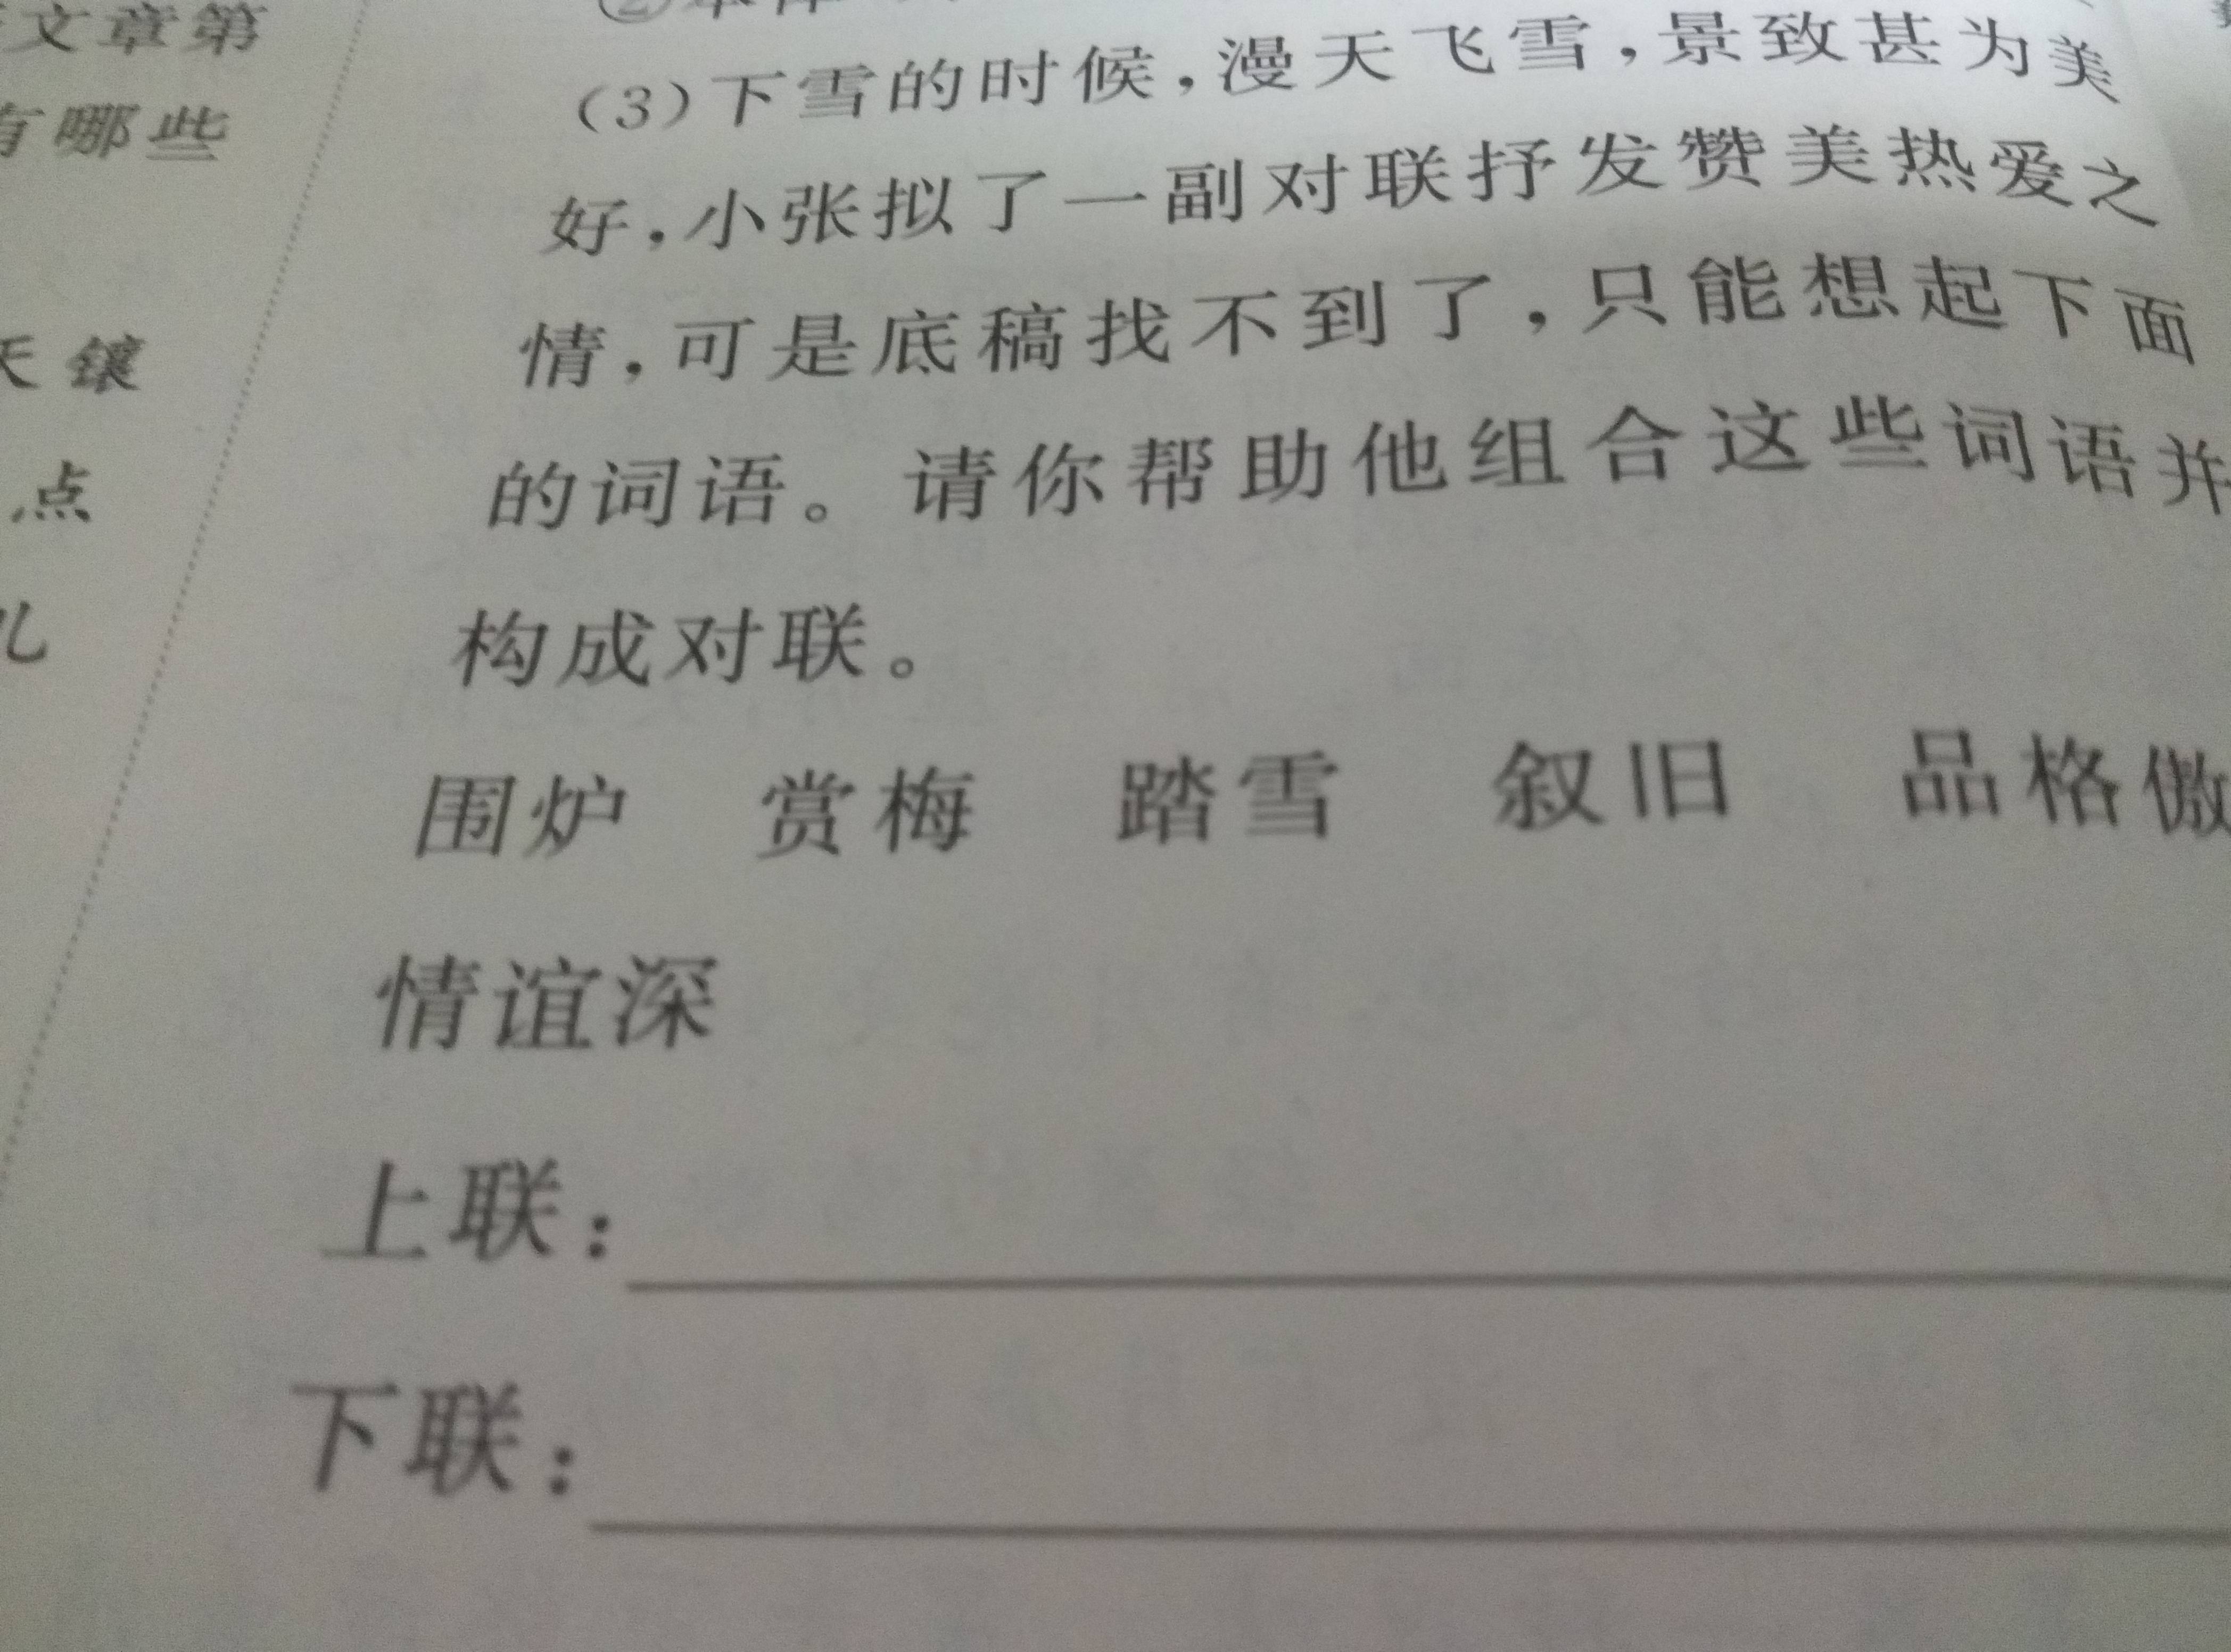 文章第
有哪些
天镶
,点
儿
(3)下雪的时候,漫天飞雪,景致甚为美
好,小张拟了一副对联抒发赞美热爱之
情,可是底稿找不到了,只能想起下面
的词语。请你帮助他组合这些词语并
构成对联。
围炉 赏梅 踏雪 叙旧 品格傲
情谊深
上联:
下联: